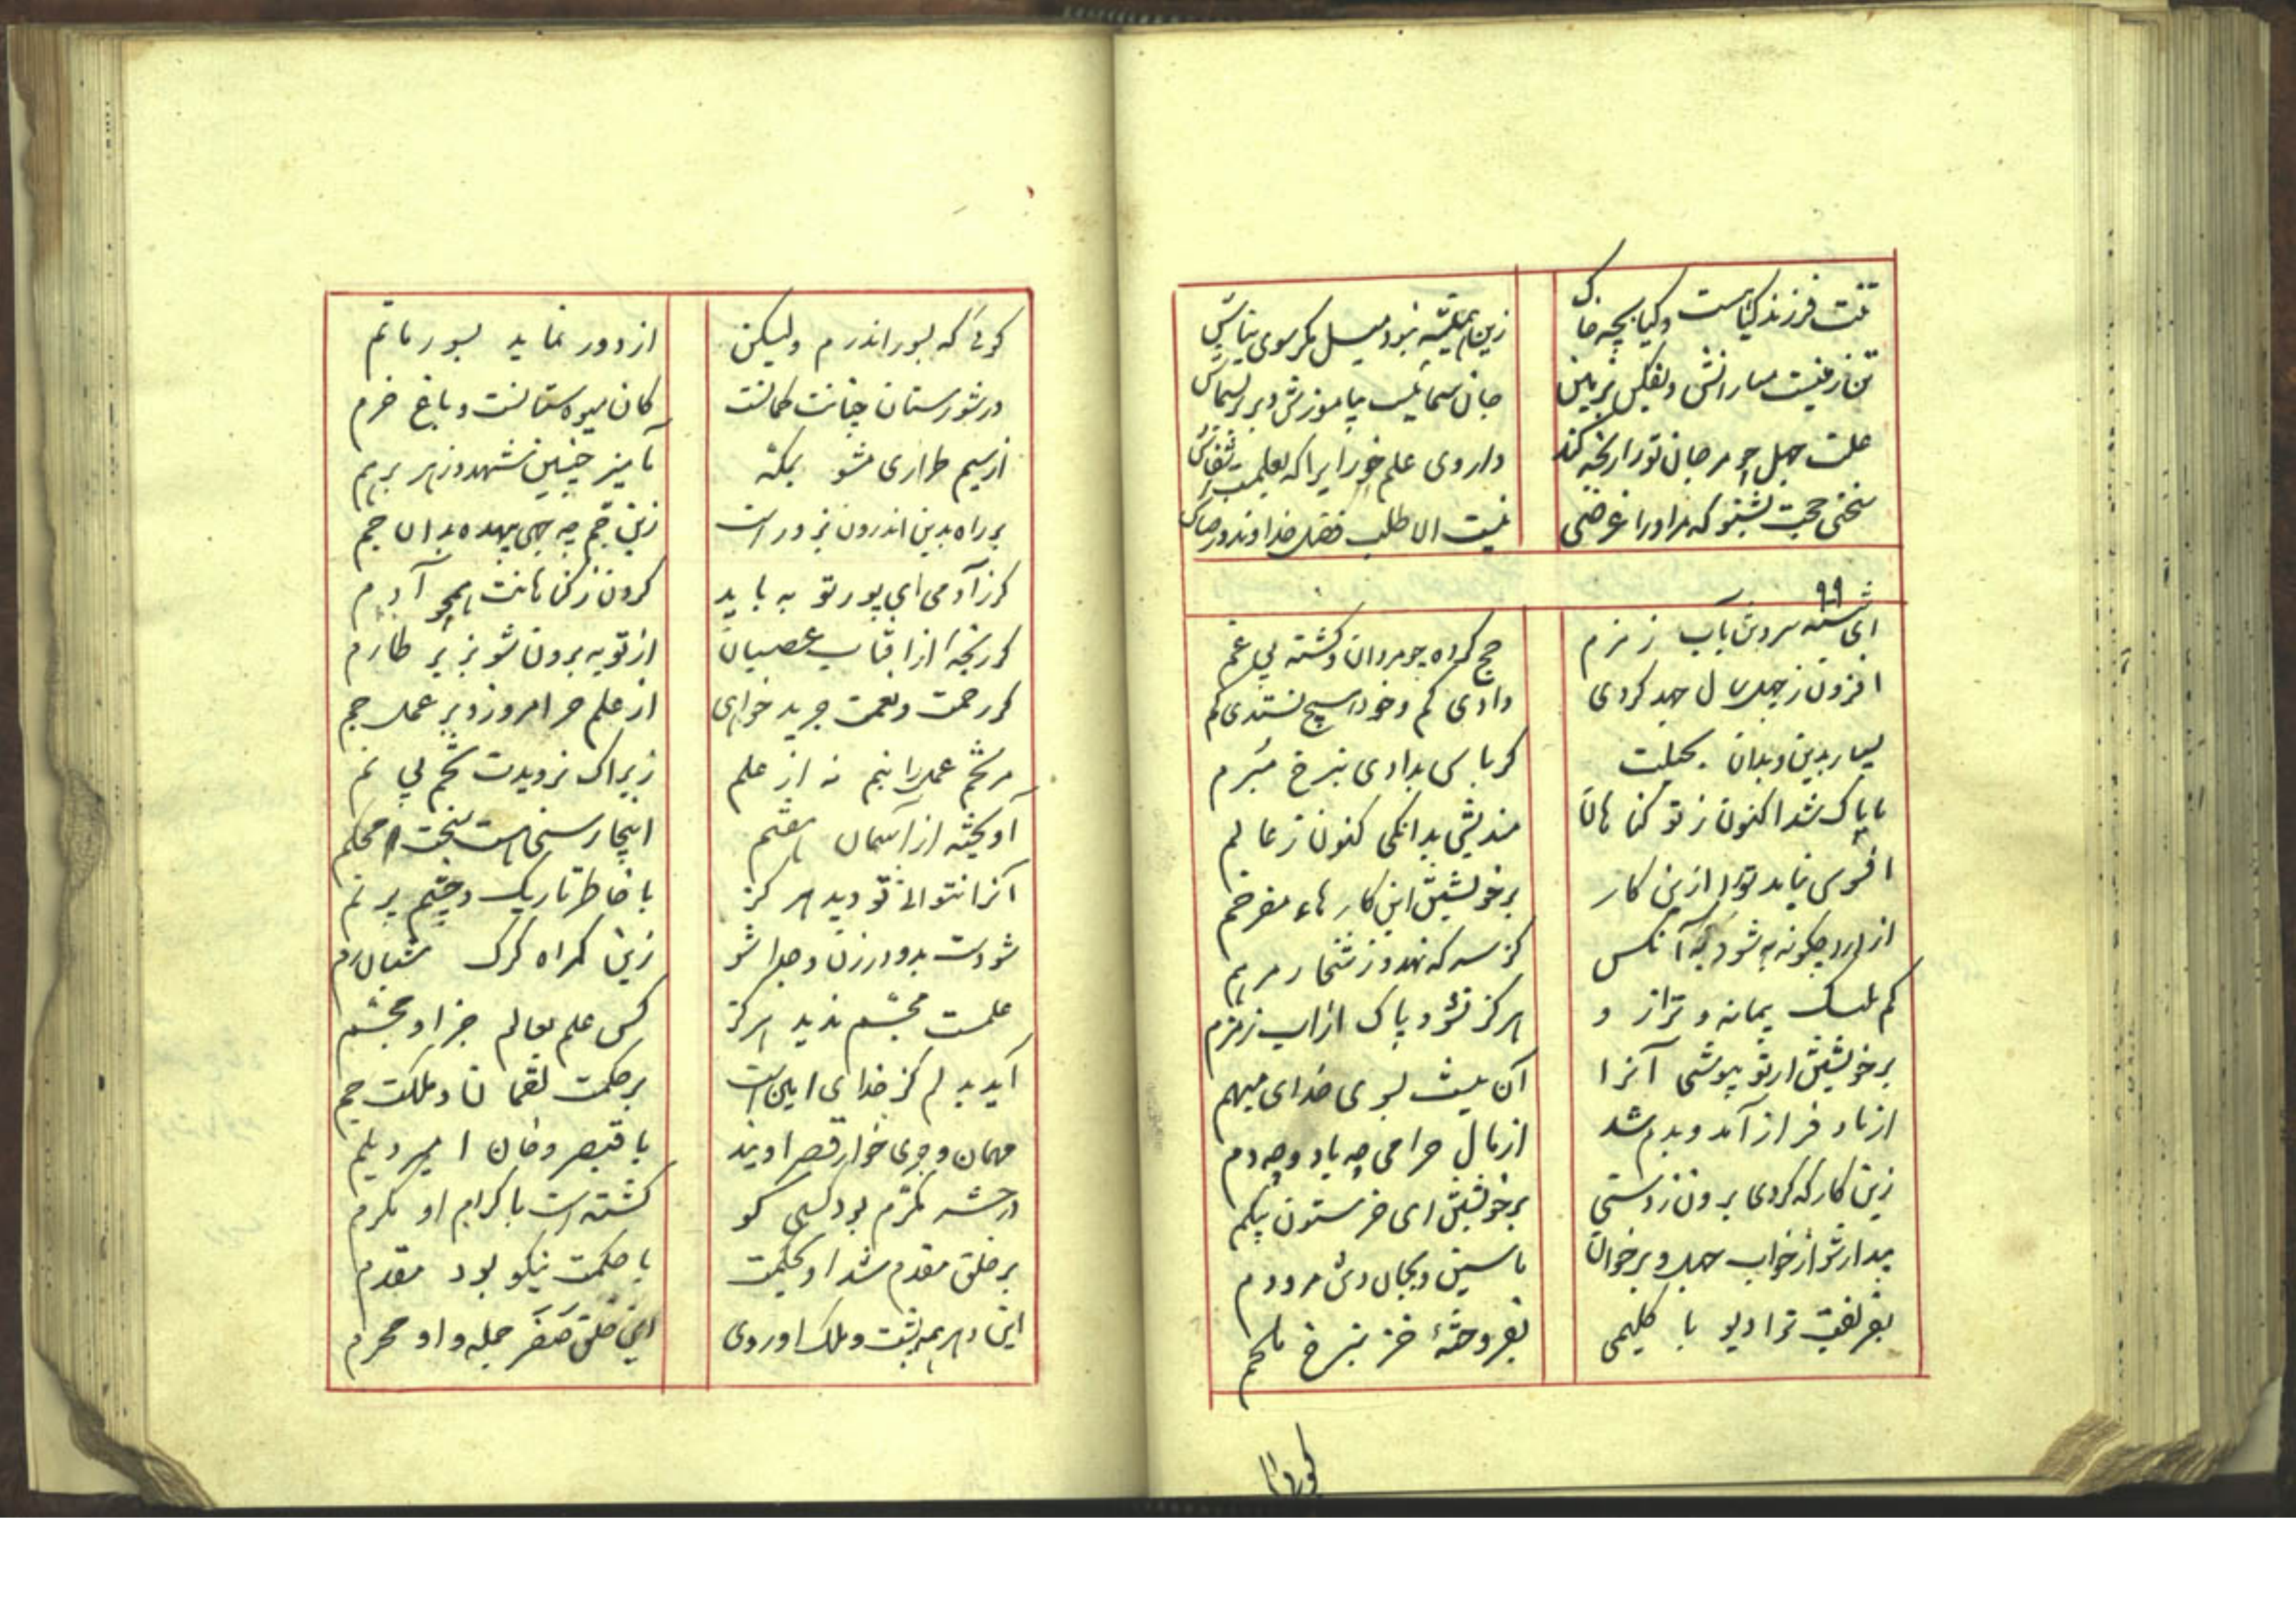 تنت فرزند کیاهست و کیا بچه خاک زین همیشه نبود میل مکر سوی نیاش
تن زمینیست میارایش و بفکن بزمین جان سمائیست بیاموزش و بر بر بسماش
علت جهل چو مر جان تو را رنجه کند داروی علم خور ایرا که بعلمست شفاش
سخن حجت بشنو که مر او را غرضی نیست الا طلب فضل خداوند و رضاش
۹۹
ای شسته سر و تن بآب زمزم حج کرده چو مردان و کشته بی غم
افزون ز چهل سال جهد کردی دادی کم و خود هیچ نستدی کم
بسیار بدین و بدان بحیلت کرباس بدادی بنرخ مبرم
تا پاک شد اکنون ز تو کناهان مندیش بدانکی کنون ز عالم
افسوس نیاید تو را ازین کار بر خویشتن این کارهاء مفرخم
از درد چکونه به شود به آنکس کز سرکه نهد وز شخار مرهم
کم بیشک پیمانه و ترازو هرکز نشود پاک از اب زمزم
بر خویشتن ار تو بپوشی آنرا آن نیست بسوی خدای مبهم
از باد فراز آمد و بدم شد از مال حرامی چه باد و چه دم
زین کار که کردی برون ز دستی بر خویشتن ای خر ستون پیکم
بیدار شو از خواب جهل و برخوان یاسین و بجان و تن مرو دم
بفریفت ترا دیو با کلیمی بفروخته خز بنرخ ملحم
کوئی که بسور اندرم ولیکن از دور نماید بسور ماتم
در شورستان چنانت کمانست کان میوه ستانست و باغ خرم
از سیم طراری مشو بمکه مامیز چنین شهد و زهر بر هم
بر راه بدین اندرون نه راست زین خم چه جهی بیهده بدان خم
کر ز آدمی ای پور توبه باید کردن ز کناهانت همچو آدم
کر رنجه‌ای از افتاب عصیان از توبه برون شو بزیر طارم
کر رحمت و نعمت چرید خواهی از علم چر امروز و بر عمل چم
مر تخم عمل را بنم نه از علم زیراک نرویدت تخم بی نم
آویخته از آسمان هفتم اینجا رسنی هست سخت محکم
آنرا نتوانی تو دید هرکز با خاطر تاریک و چشم پر نم
شو دست بدو در زن و جدا شو زین کمراه کرک شبان دم
علمست مجسم ندید هرکز کس علم بعالم جز او مجسم
آید بدلم کز خدای امین است بر حکمت لقمان و ملکت جم
مهمان و جری خوار قصر اویند با قیصر و خان امیر دیلم
در حشر مکرم بود کسی کو کشته است باکرام او مکرم
بر خلق مقدم شد او بحکمت با حکمت نیکو بود مقدم
این دهر همه پشت و ملک او روی این خلق صفر جمله و او محرم